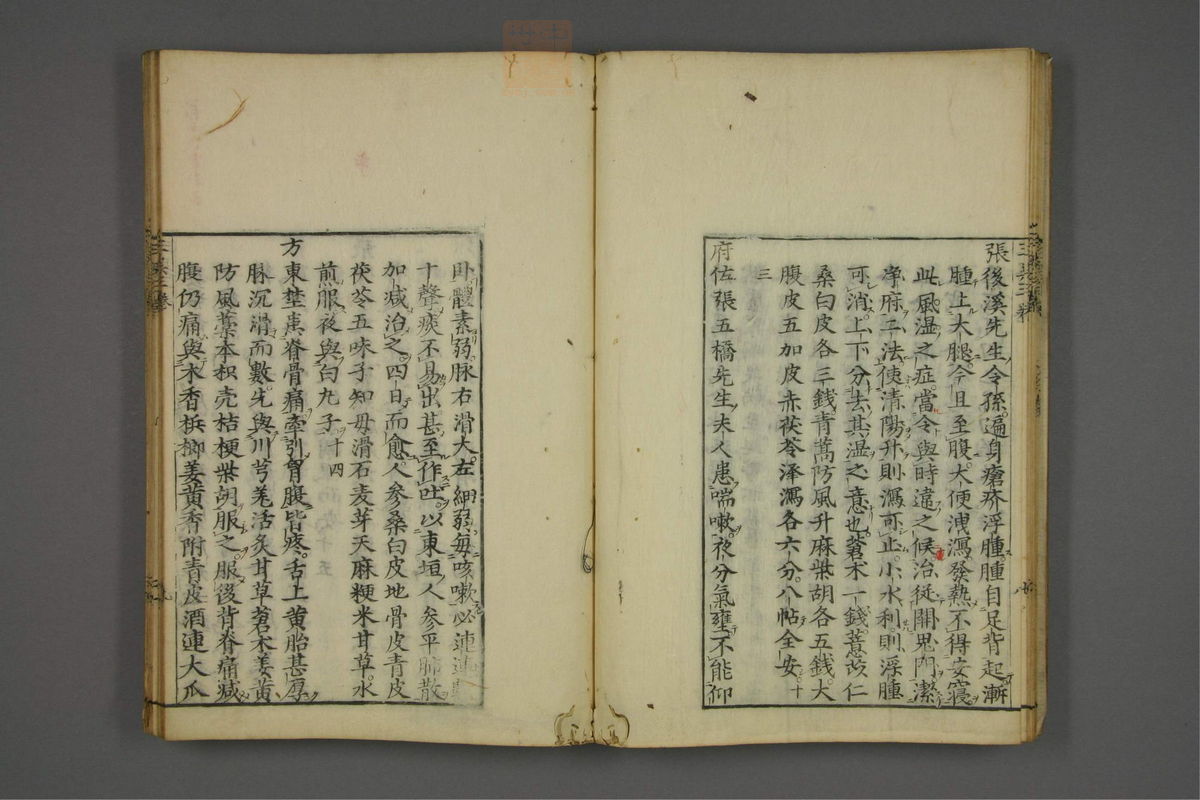 張後溪先生令孫遍身瘡疥浮腫腫自足背起漸
腫上大腿今且至腹大便洩瀉發熱不得安寢
此風濕之症當令與時違之候治從開鬼門潔
淨府二法使清陽升則瀉可止小水利則浮腫
可消上下分去其濕之意也蒼术一錢薏苡仁
桑白皮各三錢青蒿防風升麻柴胡各五錢大
腹皮五加皮赤茯苓澤瀉各六分八帖全安十
三
府佐張五橋先生夫人患喘嗽夜分氣壅不能仰
臥體素弱脉右滑大左細弱每咳嗽必連
十聲痰不易出甚至作吐以東垣人參平肺散
加減治之四日而愈人參桑白皮地骨皮青皮
茯苓五味子知母滑石麦芽天麻粳米甘草水
煎服夜與白丸子十四
方東埜患脊骨痛牽引胷腹皆疼舌上黄胎甚厚
脉沉滑而數先與川芎羌活炙甘草蒼术姜黄
防風藁本枳壳桔梗柴胡服之服後背脊痛减
腹仍痛與木香梹榔姜黄香附青皮酒連大瓜